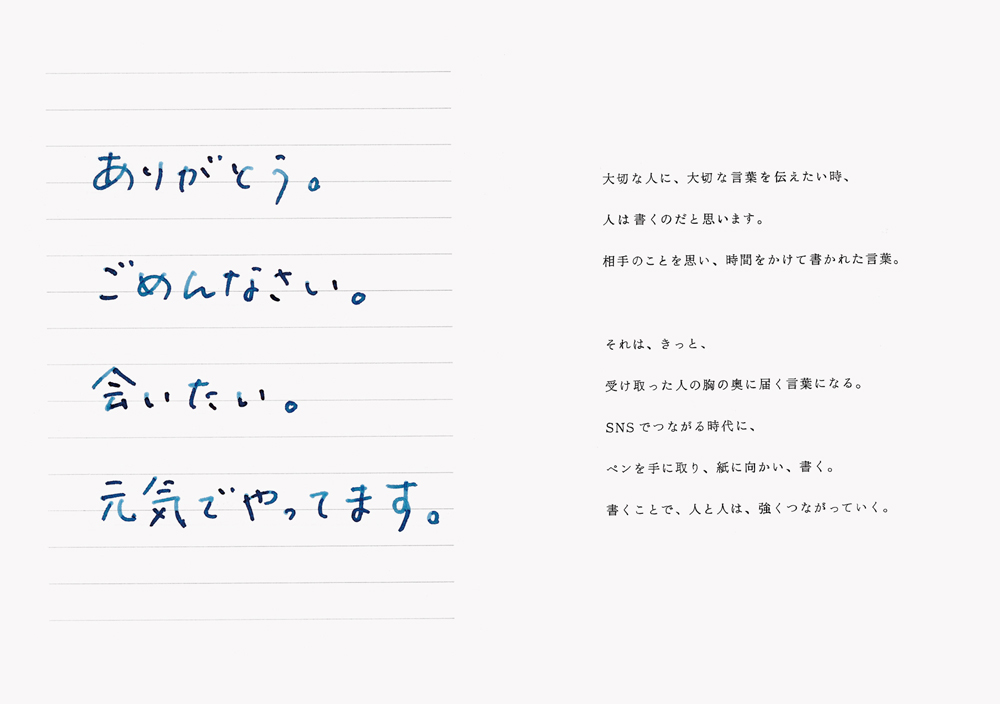 ありがとう。
ごめんなさい。
会いたい。
元気でやってます。
大切な人に、大切な言葉を伝えたい時、
人は書くのだと思います。
相手のことを思い、時間をかけて書かれた言葉。
それは、きっと、
受け取った人の胸の奥に届く言葉になる。
SNSでつながる時代に、
ペンを手に取り、紙に向かい、書く。
書くことで、人と人は、強くつながっていく。